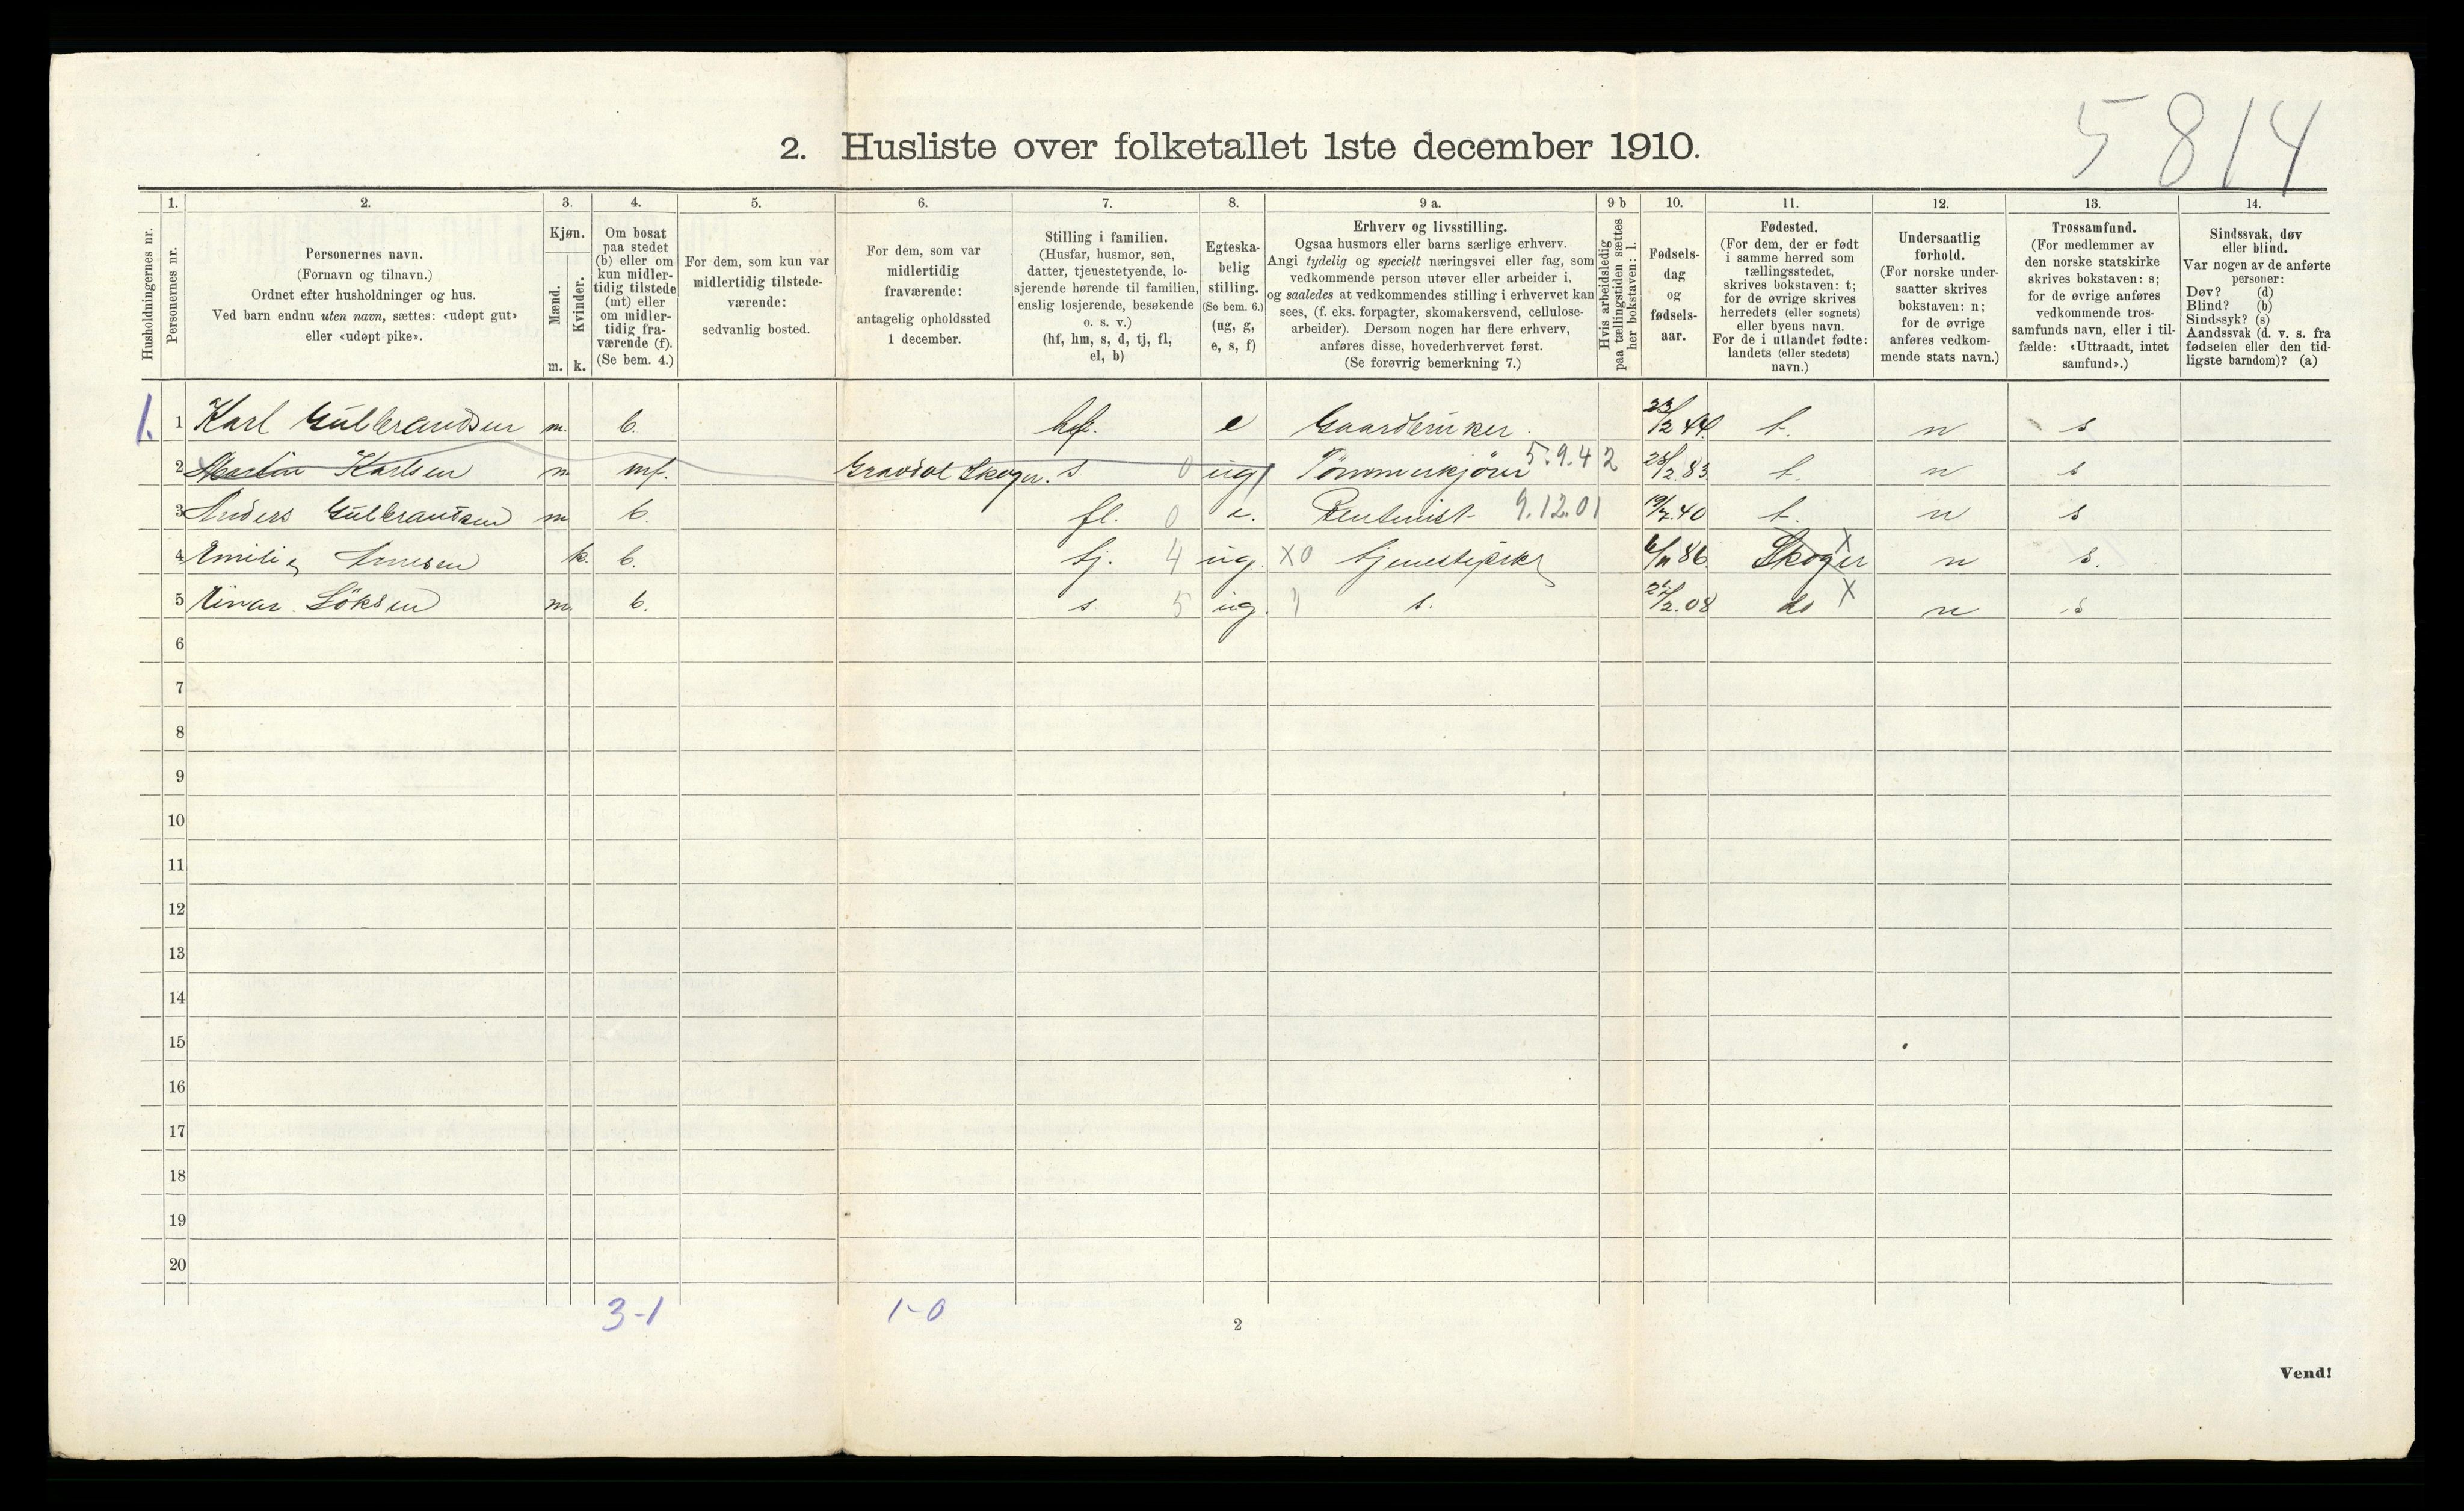 5814
2. Husliste over folketallet 1ste december 1910.
Husholdningernes nr.
1.
Personernes nr.
2.
Personernes navn.
(Fornavn og tilnavn.)
Ordnet efter husholdninger og hus.
Ved barn endnu uten navn, sættes: «udøpt gut»
eller «udøpt pike».
3.
Kjøn.
Mænd.
Kvinder.
m. k.
4.
Om bosat
paa stedet
(b) eller om
kun midler-
tidig tilstede
(mt) eller
om midler-
tidig fra-
værende (f).
(Se bem. 4.)
5.
For dem, som kun var
midlertidig tilstede-
værende:
sedvanlig bosted.
6.
For dem, som var
midlertidig
fraværende:
antagelig opholdssted
1 december.
7.
Stilling i familien.
(Husfar, husmor, søn,
datter, tjenestetyende, lo-
sjerende hørende til familien,
enslig losjerende, besøkende
o. s. v.)
(hf, hm, s, d, tj, fl,
el, b)
8.
Egteska-
belig
stilling.
(Se bem. 6.)
(ug, g,
e, s, f)
9 a.
Erhverv og livsstilling.
Ogsaa husmors eller barns særlige erhverv.
Angi tydelig og specielt næringsvei eller fag, som
vedkommende person utøver eller arbeider i,
og saaledes at vedkommendes stilling i erhvervet kan
sees, (f. eks. forpagter, skomakersvend, cellulose-
arbeider). Dersom nogen har flere erhverv,
anføres disse, hovederhvervet først.
(Se forøvrig bemerkning 7.)
9 b
Hvis arbeidsledig
paa tællingstiden sættes
her bokstaven: l.
10.
Fødsels-
dag
og
fødsels-
aar.
11.
Fødested.
(For dem, der er født
i samme herred som
tællingsstedet,
skrives bokstaven: t;
for de øvrige skrives
herredets (eller sognets)
eller byens navn.
For de i utlandet fødte:
landets (eller stedets)
navn.)
12.
Undersaatlig
forhold.
(For norske under-
saatter skrives
bokstaven: n;
for de øvrige
anføres vedkom-
mende stats navn.)
13.
Trossamfund.
(For medlemmer av
den norske statskirke
skrives bokstaven: s;
for de øvrige anføres
vedkommende tros-
samfunds navn, eller i til-
fælde: «Uttraadt, intet
samfund».)
14.
Sindssvak, døv
eller blind.
Var nogen av de anførte
personer:
Døv? (d)
Blind? (b)
Sindssyk? (s)
Aandssvak (d. v. s. fra
fødselen eller den tid-
ligste barndom)? (a)
1. 1 Karl Gulbrandsen m. b. hf. e Gaardbruker. 23/2 44. t. n s
2 Martin Karlsen m mf. Skoger. s 0 ug Tømmerkjører 5.9.42 28/2.83. t. n s
3 Anders Gulbrandsen m b. fl. 0 e. Rentenist 9.12.01 19/7.40 t. n s
4 Emilie k. b. tj. 4 ug. X0 tjenestepike 6/11 86. Skoger X n s.
5 Einar m. b. s 5 ug. 1 s. /2.08 do X n s
6
7
8
9
10
11
12
13
14
15
16
17
18
19
20
3-1 1-0
2
Vend!